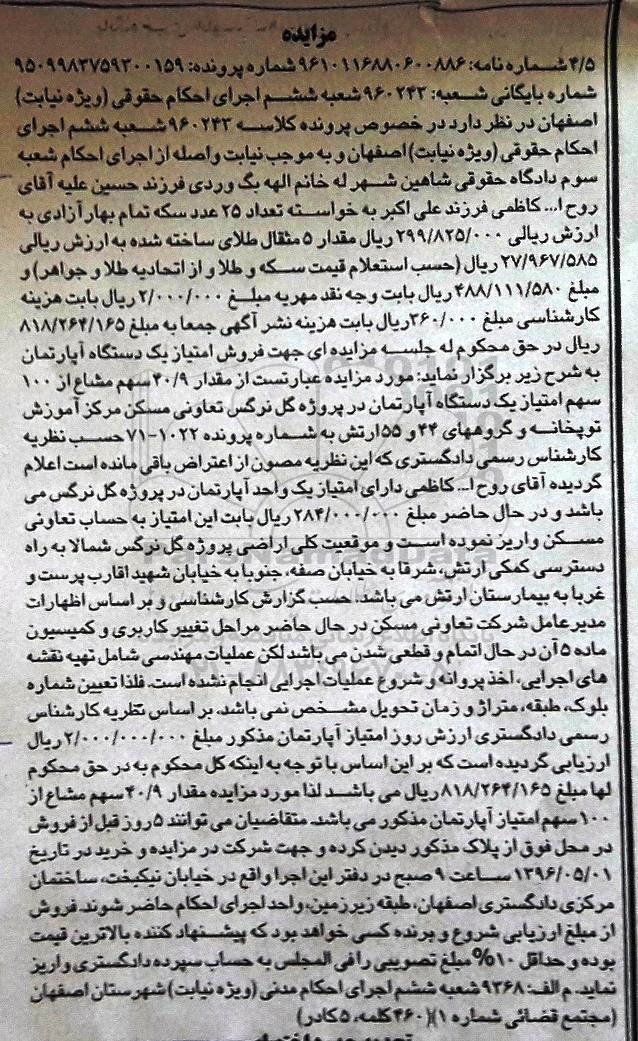 مزایده
۴/۵ شماره نامه: ۹۶۱۰۱۱۶۸۸۰۶۰۰۸۸۶ شماره پرونده: ۹۵۰۹۹۸۳۷۵۹۳۰۰۱۵۹
شماره بایگانی شعبه: ۹۶۰۲۴۳ شعبه ششم اجرای احکام حقوقی (ویژه نیابت)
اصفهان در نظر دارد در خصوص پرونده کلاسه ۹۶۰۲۴۳ شعبه ششم اجرای
احکام حقوقی (ویژه نیابت) اصفهان و به موجب نیابت واصله از اجرای احکام شعبه
سوم دادگاه حقوقی شاهین شهر له خانم الهه بگ وردی فرزند حسین علیه آقای
روح ا... کاظمی فرزند علی اکبر به خواسته تعداد ۲۵ عدد سکه تمام بهار آزادی به
ارزش ریالی ۲۹۹/۸۲۵/۰۰۰ ریال مقدار ۵ مثقال طلای ساخته شده به ارزش ریالی
۲۷/۹۶۷/۵۸۵ ریال (حسب استعلام قیمت سکه و طلا و از اتحادیه طلا و جواهر) و
مبلغ ۴۸۸/۱۱۱/۵۸۰ ریال بابت وجه نقد مهریه مبلغ ۲/۰۰۰/۰۰۰ ریال بابت هزینه
کارشناسی مبلغ ۳۶۰/۰۰۰ ریال بابت هزینه نشر آگهی جمعا به مبلغ ۸۱۸/۲۶۴/۱۶۵
ریال در حق محکوم له جلسه مزایده ای جهت فروش امتیاز یک دستگاه آپارتمان
به شرح زیر برگزار نماید: مورد مزایده عبارتست از مقدار ۴۰/۹ سهم مشاع از ۱۰۰
سهم امتیاز یک دستگاه آپارتمان در پروژه گل نرگس تعاونی مسکن مرکز آموزش
توپخانه و گروههای ۴۴ و ۵۵ ارتش به شماره پرونده ۱۰۲۲-۷۱ حسب نظریه
کارشناس رسمی دادگستری که این نظریه مصون از اعتراض باقی مانده است اعلام
گردیده آقای روح ا... کاظمی دارای امتیاز یک واحد آپارتمان در پروژه گل نرگس می
باشد و در حال حاضر مبلغ ۲۸۴/۰۰۰/۰۰۰ ریال بابت این امتیاز به حساب تعاونی
مسکن واریز نموده است و موقعیت کلی اراضی پروژه گل نرگس شمالا به راه
دسترسی کمکی ارتش، شرقا به خیابان صفه، جنوبا به خیابان شهید اقارب پرست و
غربا به بیمارستان ارتش می باشد. حسب گزارش کارشناسی و بر اساس اظهارات
مدیر عامل شرکت تعاونی مسکن در حال حاضر مراحل تغییر کاربری و کمیسیون
ماده ۵ آن در حال اتمام و قطعی شدن می باشد لکن عملیات مهندسی شامل تهیه نقشه
های اجرایی، اخذ پروانه و شروع عملیات اجرایی انجام نشده است. فلذا تعیین شماره
بلوک، طبقه، متراژ و زمان تحویل مشخص نمی باشد. بر اساس نظریه کارشناس
رسمی دادگستری ارزش روز امتیاز آپارتمان مذکور مبلغ ۲/۰۰۰/۰۰۰/۰۰۰ ریال
ارزیابی گردیده است که بر این اساس با توجه به اینکه کل محکوم به در حق محکوم
لها مبلغ ۸۱۸/۲۶۴/۱۶۵ ریال می باشد لذا مورد مزایده مقدار ۴۰/۹ سهم مشاع از
۱۰۰ سهم امتیاز آپارتمان مذکور می باشد. متقاضیان می توانند ۵ روز قبل از فروش
در محل فوق از پلاک مذکور دیدن کرده و جهت شرکت در مزایده و خرید در تاریخ
۱۳۹۶/۰۵/۰۱ ساعت ۹ صبح در دفتر این اجرا واقع در خیابان نیکبخت، ساختمان
مرکزی دادگستری اصفهان، طبقه زیرزمین، واحد اجرای احکام حاضر شوند. فروش
از مبلغ ارزیابی شروع و برنده کسی خواهد بود که پیشنهاد کننده بالاترین قیمت
بوده و حداقل ۱۰% مبلغ تصویبی را فی المجلس به حساب سپرده دادگستری واریز
نماید. م الف: ۹۳۶۸ شعبه ششم اجرای احکام مدنی (ویژه نیابت) شهرستان اصفهان
(مجتمع قضائی شماره ۱) (۴۶۰ کلمه، ۵ کادر)